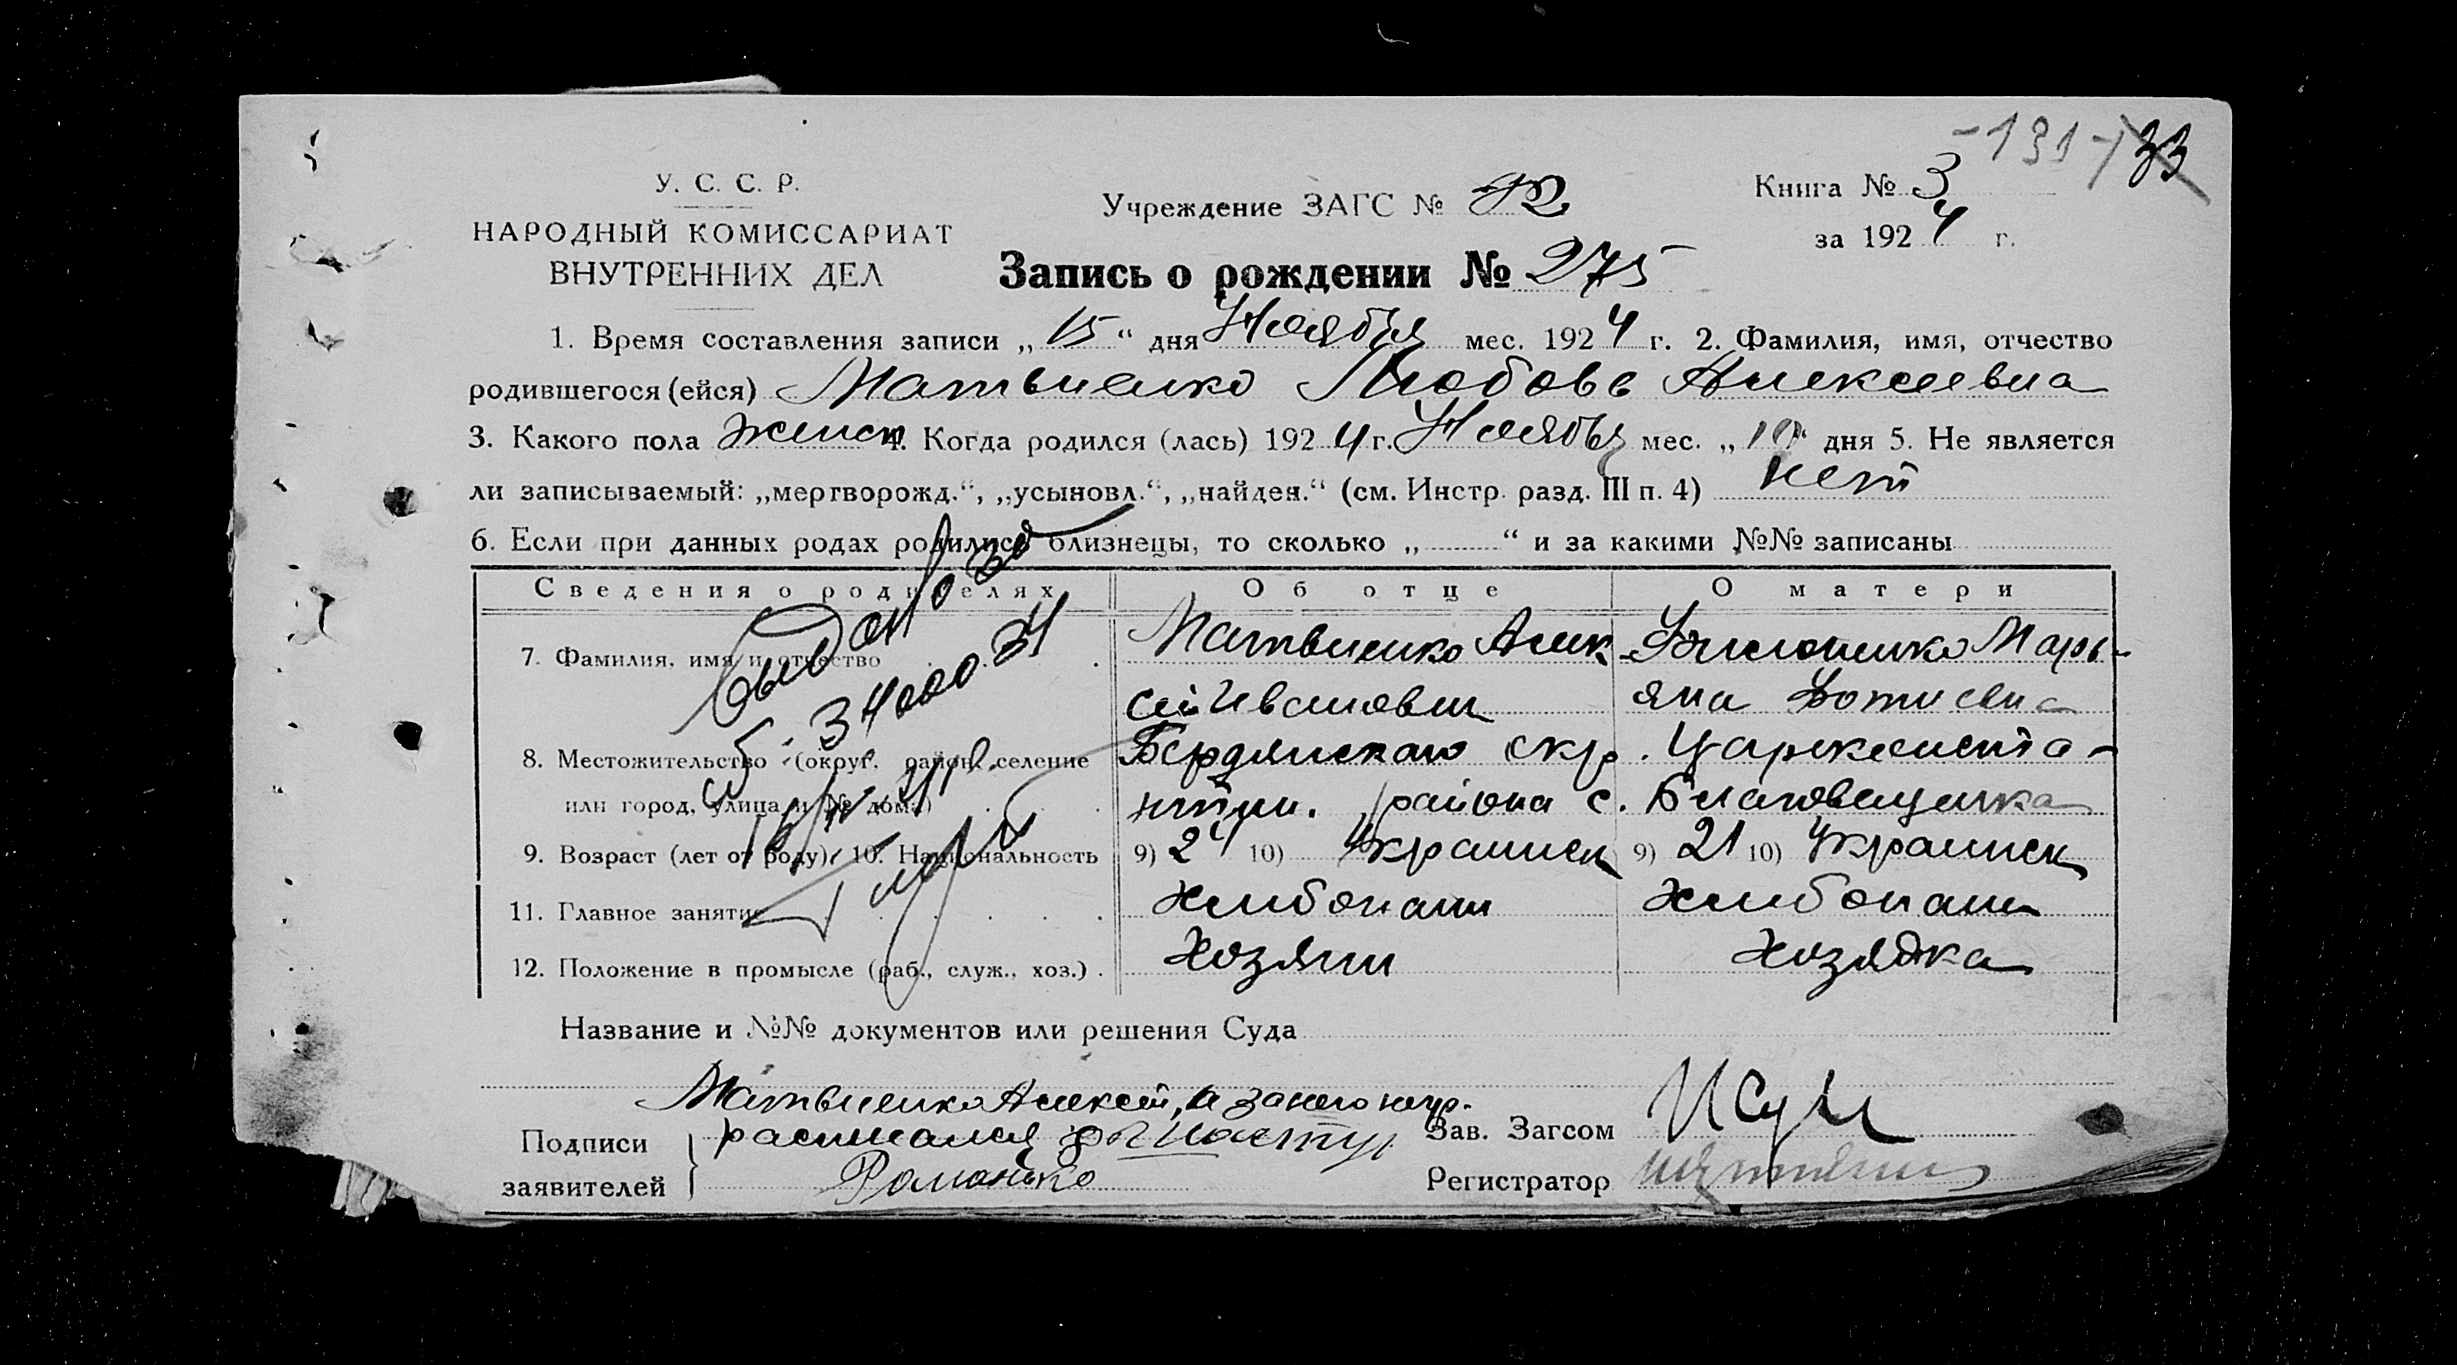 -131- 33
У. С. С. Р.
НАРОДНЫЙ КОМИССАРИАТ
ВНУТРЕННИХ ДЕЛ
Учреждение ЗАГС №
Книга № 3
за 1924 г.
Запись о рождении № 275
1. Время составления записи „15“ дня Ноября мес. 1924 г. 2. Фамилия, имя, отчество
родившегося (ейся) Матвиенко Любовь Алексеевна
3. Какого пола женск 4. Когда родился (лась) 1924 г. Ноября мес. „10“ дня 5. Не является
ли записываемый: „мертворожд.“, „усыновл.“, „найден.“ (см. Инстр. разд. III п. 4) нет
6. Если при данных родах родилися близнецы, то сколько „ “ и за какими №№ записаны
Сведения о родителях Об отце О матери
7. Фамилия, имя и отчество Матвиенко Алек Марь-
сей Иванович яна
8. Местожительство (округ, район, селение Бердянского окр. Царконстан-
или город, улица и № дома) района с. Благовещенка
9. Возраст (лет от роду) 10. Национальность 9) 24 10) Украинец 9) 21 10) Украинск
11. Главное занятие Хлибопаш Хлибопаш
12. Положение в промысле (раб., служ., хоз.) Хозяин Хозяйка
Название и №№ документов или решения Суда
Матвиенко Алексей, а за него негр.
Подписи расписался
заявителей Романько
Зав. Загсом
Регистратор